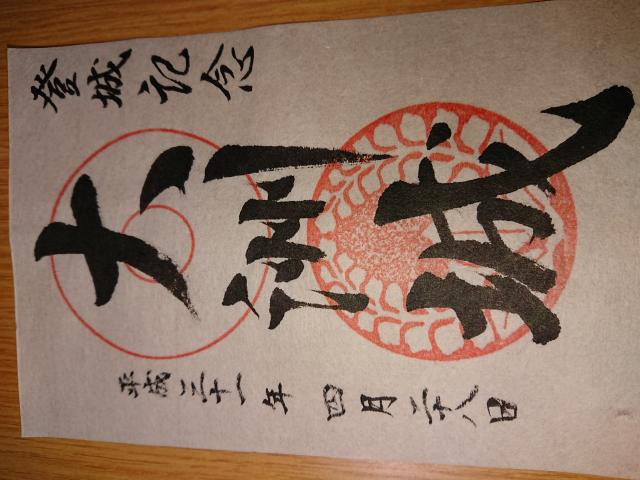 登城記念
大洲城
平成三十一年 四月二十八日